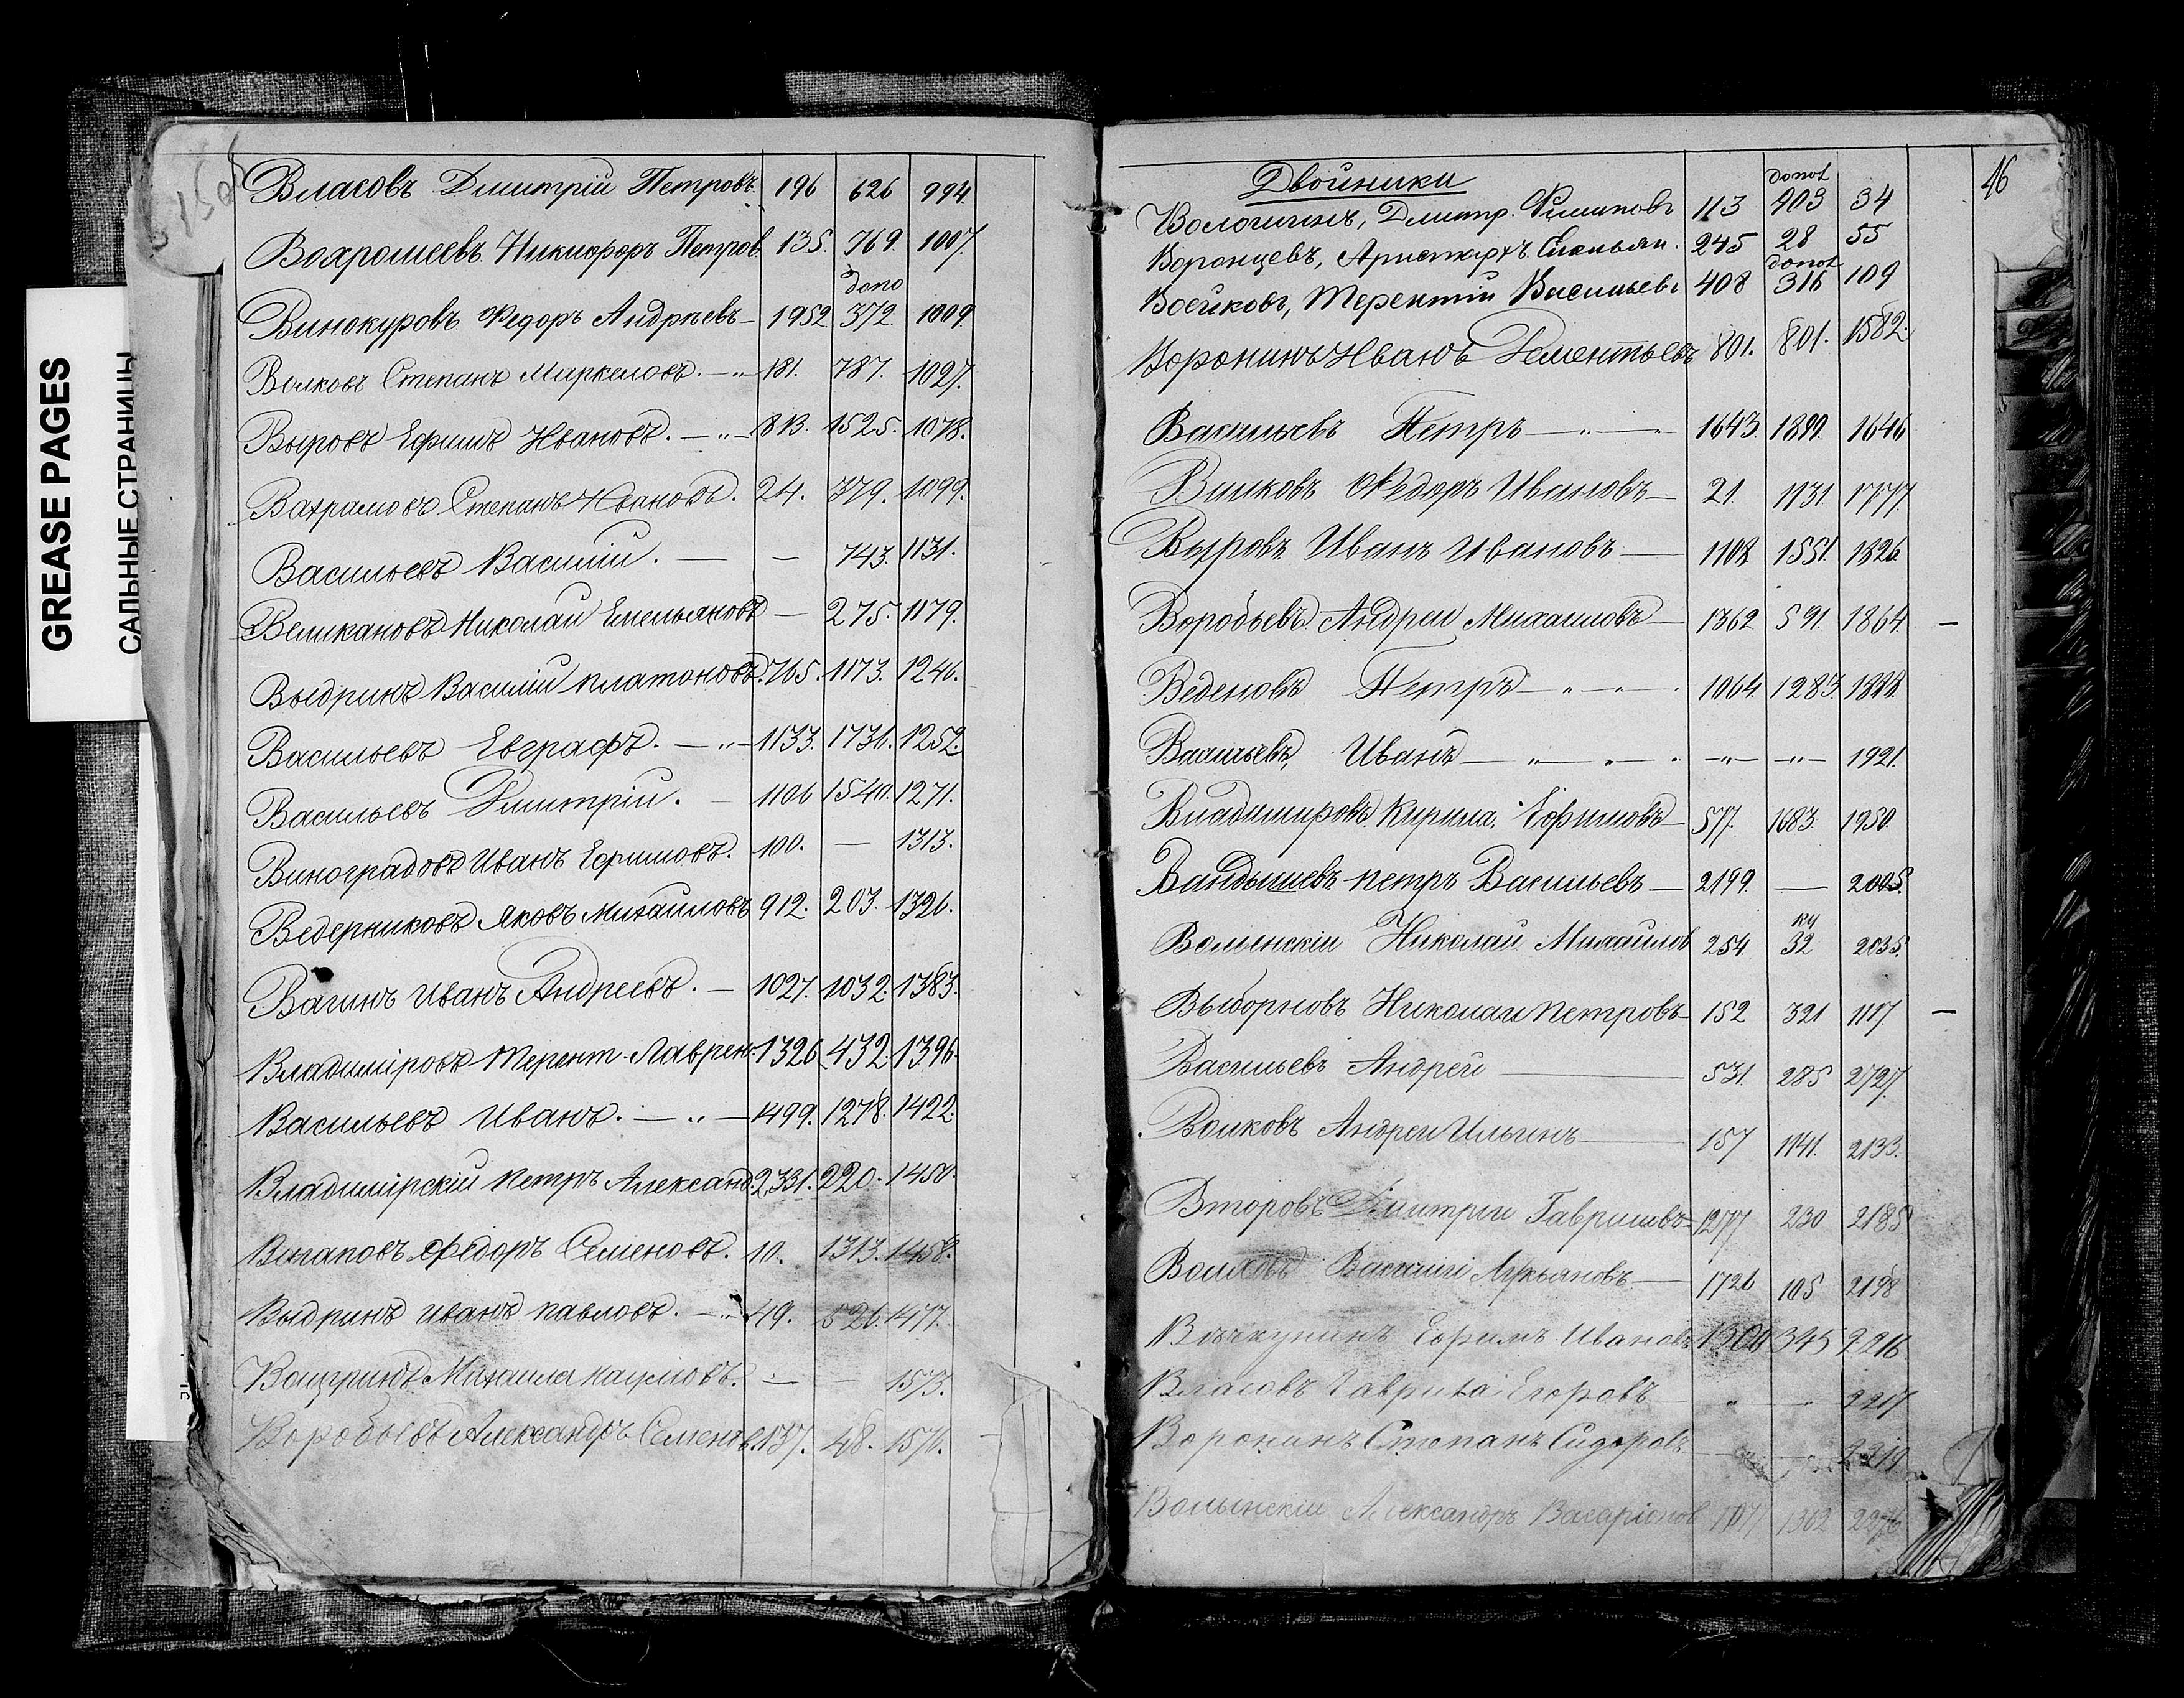 GREASE PAGES
САЛЬНЫЕ СТРАНИЦЫ
Власовъ Дмитрій Петровъ. 196 626 994.
Вахромеевъ Никифоръ Петров. 135. 769. 1007.
допо
Винокуровъ Федоръ Андрѣевъ — 1952 372. 1009.
Волковъ Степанъ Маркеловъ. — „ — 181. 787. 1027.
Выровъ Ефимъ Ивановъ. — „ — 813. 1525. 1078.
Вахрамовъ Степанъ Ивановъ. 24. 379. 1099.
Васильевъ Василій. — — 743. 1131.
Великановъ Николай Емельяновъ — 275. 1179.
Выдринъ Василій Платоновъ. 765. 1173. 1246.
Васильевъ Евграфъ. — „ — 1133. 1736. 1252.
Васильевъ Дмитрій. — 1106 1540. 1271.
Виноградовъ Иванъ Ефимовъ. 100. — 1313.
Ведерниковъ Яковъ Михаиловъ 912. 203. 1326.
Вагинъ Иванъ Андреевъ. — 1027. 1032. 1383.
Владиміровъ Терент. Лаврен. 1326 432. 1396.
Васильевъ Иванъ. — „ — 1499. 1278. 1422.
Владимірскій Петръ Александ. 2331. 220. 1450.
Вагаповъ Федоръ Семеновъ. 10. 1313. 1458.
Выдринъ Иванъ Павловъ. — „ 49. 526. 1477.
Михаила Наумовъ. — — 1573.
Воробьевъ Александръ Семенов. 1137. 48. 1576.
16
Двойники
допол
Вологинъ, Дмитр. Филиповъ 113 903 34
Воронцевъ, Аристархъ Емельян. 245 28 55
допол
Воейковъ, Терентій Васильевъ 408 316 109
Воронинъ Иванъ Дементьевъ 801. 801. 1582.
Васильевъ Петръ — „ — 1643. 1899. 1646
Вилковъ Федоръ Ивановъ — 21. 1131. 1777.
Выровъ Иванъ Ивановъ — 1108 1551. 1826
Воробьевъ Андрей Михаиловъ — 1362 591. 1864. —
Веденовъ Петръ — „ — „ 1064 1283. 1888.
Васильевъ, Иванъ — „ — „ — „ — — „ — 1921.
Владимировъ Кирила Ефимовъ — 577. 1683. 1950.
Вандышевъ Петръ Васильевъ — 2199. — 2005.
Волынскій Николай Михаилов 254. 32 2035.
Выборновъ Николаи Петровъ — 152 321 1117. —
Васильевъ Андрей — 531. 285 2727.
Волковъ Андреи Ильинъ — 157 1141. 2133.
Второвъ Дмитріи Гавриловъ — 1277 230 2185
Волковъ Василіи Лукьяновъ — 1726 105 2198
Ефимъ Ивановъ 1300 345 2216
Власовъ Гаврила Егоровъ „ — 2217
Воронинъ Степанъ Сидоровъ 2219
Волынскіи Александръ Васаріонов 1707 1362 2276